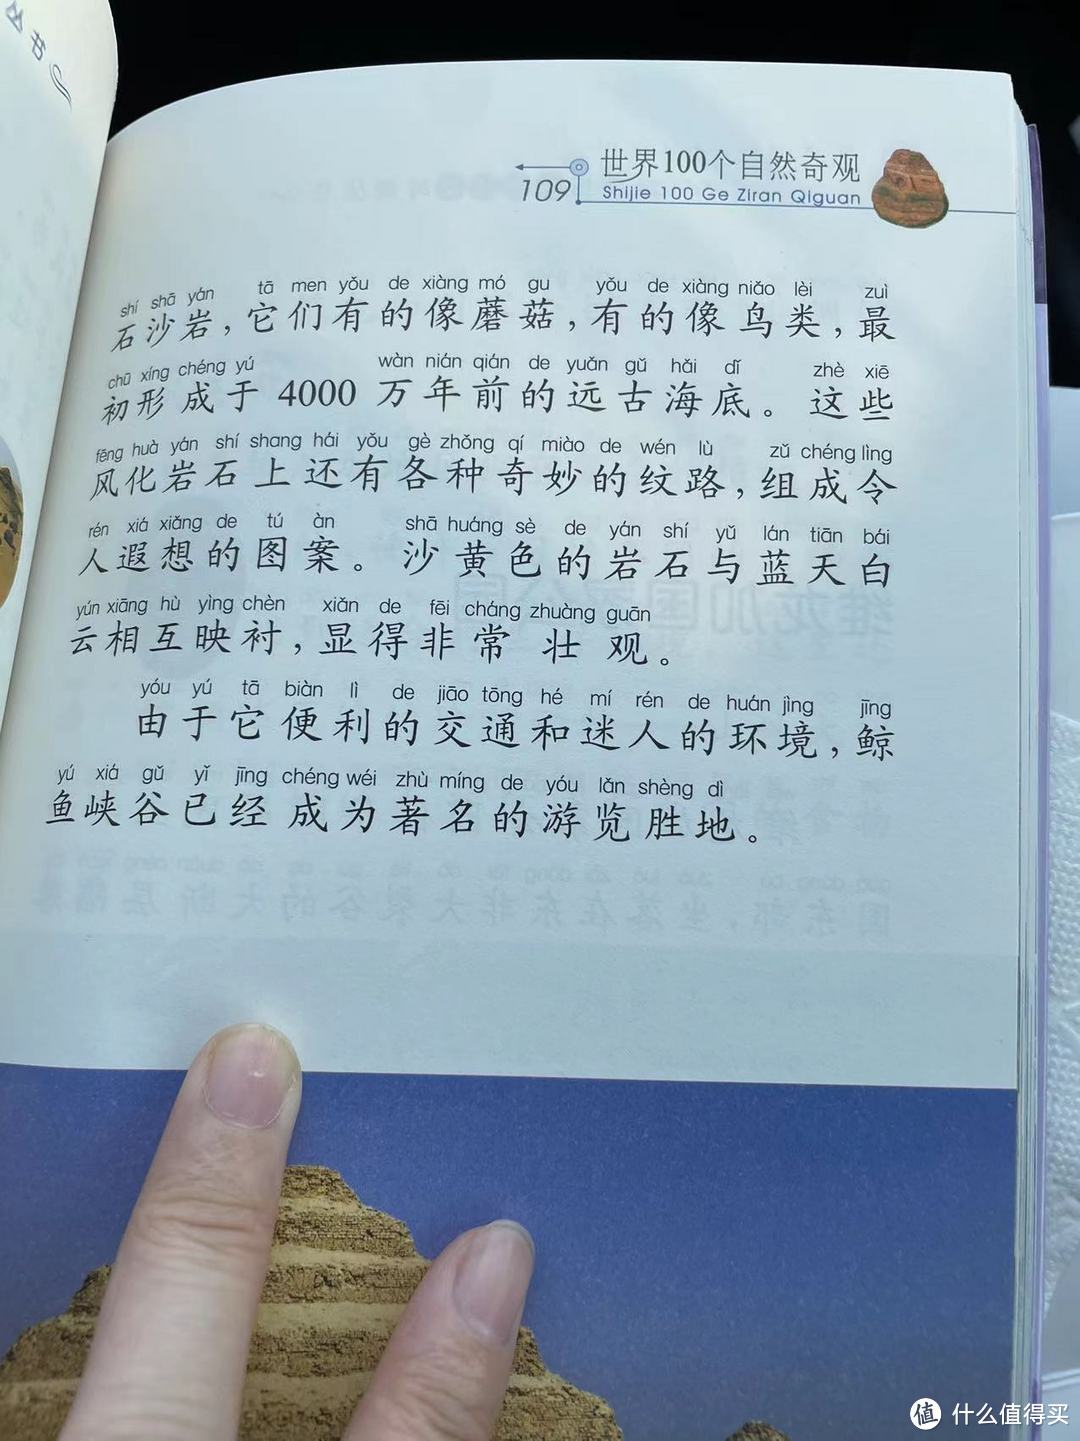 丛书
109
世界100个自然奇观
Shijie 100 Ge Ziran Qiguan
shí shā yán tā men yǒu de xiàng mó gu yǒu de xiàng niǎo lèi zuì
石沙岩，它们有的像蘑菇，有的像鸟类，最
chū xíng chéng yú wàn nián qián de yuǎn gǔ hǎi dǐ zhè xiē
初形成于4000万年前的远古海底。这些
fēng huà yán shí shang hái yǒu gè zhǒng qí miào de wén lù zǔ chéng lìng
风化岩石上还有各种奇妙的纹路，组成令
rén xiá xiǎng de tú àn shā huáng sè de yán shí yǔ lán tiān bái
人遐想的图案。沙黄色的岩石与蓝天白
yún xiāng hù yìng chèn xiǎn de fēi cháng zhuàng guān
云相互映衬，显得非常壮观。
yóu yú tā biàn lì de jiāo tōng hé mí rén de huán jìng jīng
由于它便利的交通和迷人的环境，鲸
yú xiá gǔ yǐ jīng chéng wéi zhù míng de yóu lǎn shèng dì
鱼峡谷已经成为著名的游览胜地。
值 什么值得买